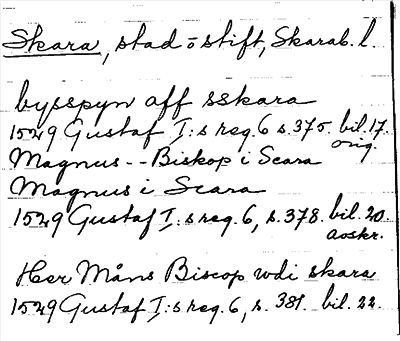 Skara, stad o stift, Skarab. l.
bysspyn aff sskara
1529 Gustaf I:s reg. 6 s. 375. bil. 17.
orig.
Magnus - - Biskop i Scara
Magnus i Scara
1529 Gustaf I:s reg. 6, s. 378. bil. 20.
avskr.
Her Måns Biscop wdi skara
1529 Gustaf I:s reg. 6, s. 381. bil. 22.